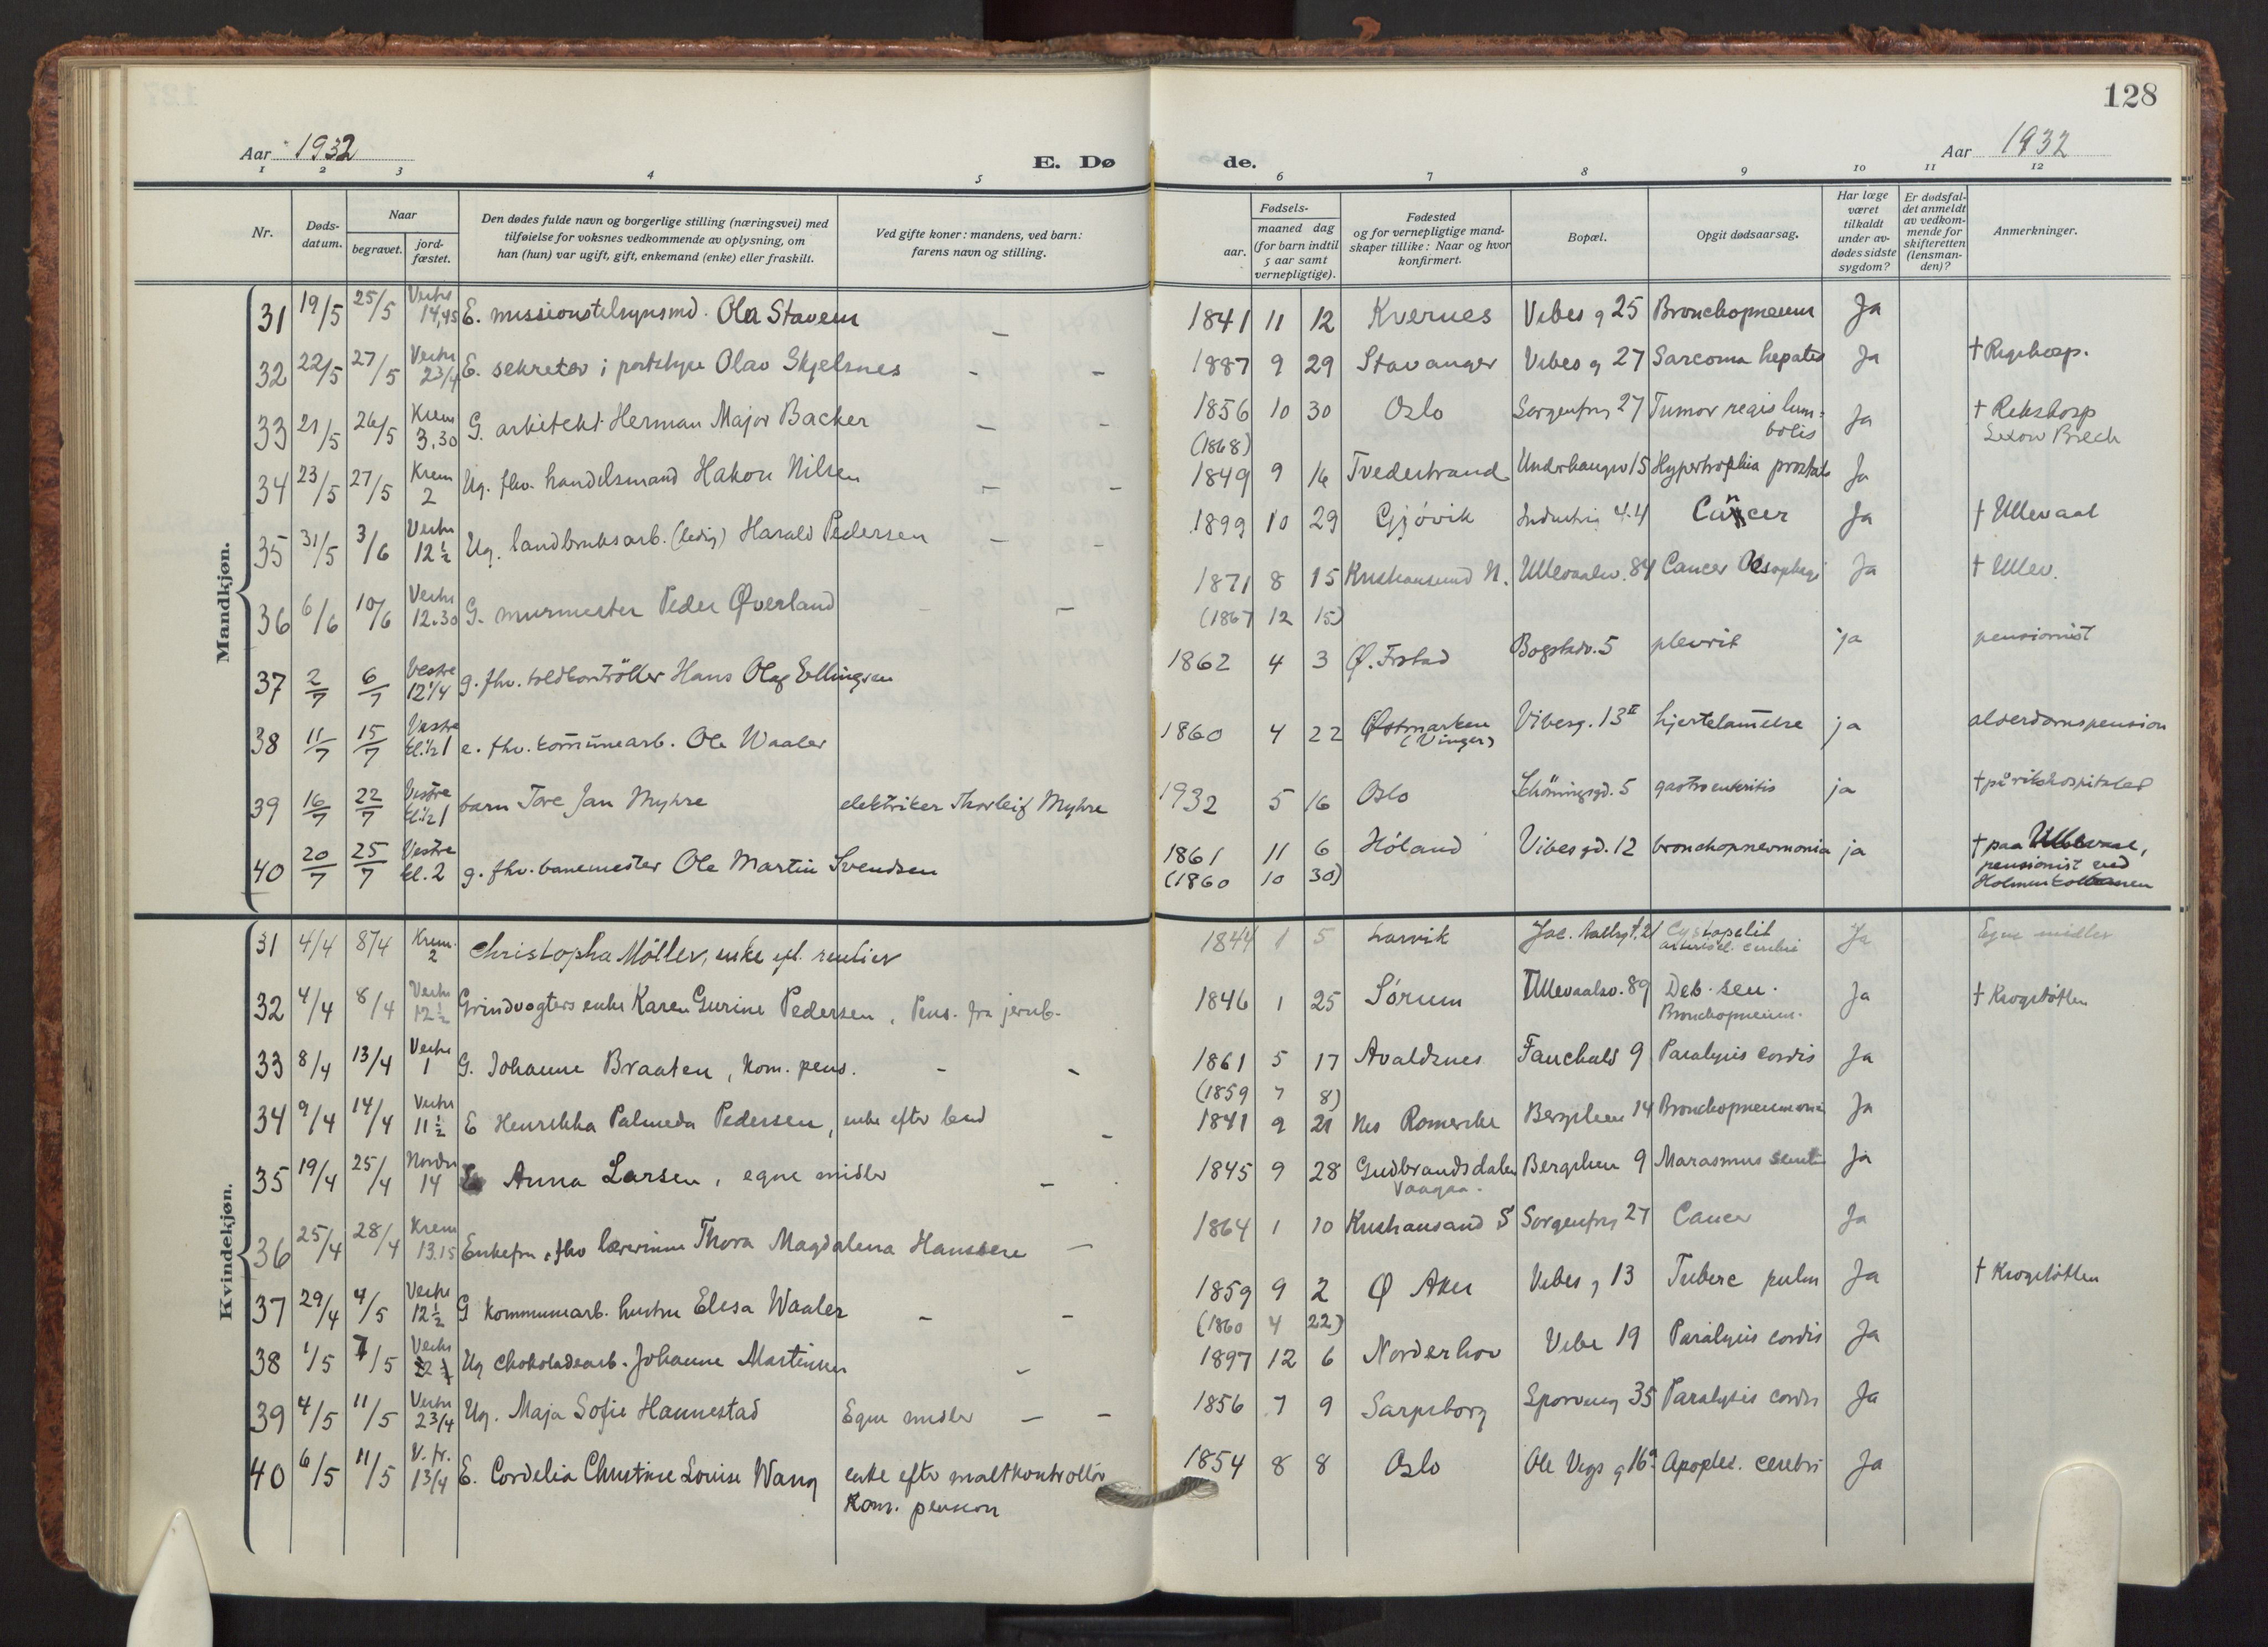 128
Aar 1932
E. Dø de.
Aar 1932
1 2 3 4 5 6 7 8 9 10 11 12
Nr.
Døds-datum.
Naar
begravet.
jord-fæstet.
Den dødes fulde navn og borgerlige stilling (næringsvei) med
tilføielse for voksnes vedkommende av oplysning, om
han (hun) var ugift, gift, enkemand (enke) eller fraskilt.
Ved gifte koner: mandens, ved barn:
farens navn og stilling.
Fødsels-
aar.
maaned dag
(for barn indtil
5 aar samt
vernepligtige).
Fødested
og for vernepligtige mand-
skaper tillike: Naar og hvor
konfirmert.
Bopæl.
Opgit dødsaarsag.
Har læge
været
tilkaldt
under av-
dødes sidste
sygdom?
Er dødsfal-
det anmeldt
av vedkom-
mende for
skifteretten
(lensman-
den)?
Anmerkninger.
Mandkjøn.
31 19/5 25/5 Vestre 14,45 E. missionstilsynsmd. Ola Stavem – 1841 11 12 Kvernes Vibes g 25 Bronchopneum Ja
32 22/5 27/5 Vestre 2 3/4 E. sekretær i poststyre Olav Skjelsnes – – 1887 9 29 Stavanger Vibes g 27 Sarcoma hepatis Ja † Rigshosp.
33 21/5 26/5 Krem 3.30 G. arkitekt Herman Major Backer – – 1856 10 30 Oslo Sorgenfrig 27 Tumor regis lum= bolis Ja † Rikshosp
(1868)
34 23/5 27/5 Krem 2 Ug. fhv. handelsmand Hakon Nilsen – – 1849 9 16 Tvedestrand Underhaugsv 15 Hypertrophia prostat Ja
35 31/5 3/6 Vestre 12 1/2 Ug. landbruksarb. (ledig) Harald Pedersen – – 1899 10 29 Gjøvik Industrig 44 Cancer Ja † Ullevaal
36 6/6 10/6 Vestre 12.30 G. murmester Peder Øverland – – 1871 8 15 Kristiansund N. Ullevaalsv. 84 Cancer Oesophagi Ja † Ullev.
(1867 12 15)
37 2/7 6/7 Vestre 12 1/4 g. fhv. toldkontrollør Hans Olaf Ellingsen 1862 4 3 Ø. Frstad Bogstadv. 5 plevrit ja pensionist
38 11/7 15/7 Vestre kl. 1/2 1 e. fhv. kommunearb. Ole Waaler 1860 4 22 Østmarken (Vinger) Vibesg. 13 II hjertelammelse ja alderdomspension
39 16/7 22/7 Vestre kl. 1/2 1 barn Tore Jan Myhre elektriker Thorleif Myhre 1932 5 16 Oslo Schöningsgd. 5 gastroenteritis ja † på rikshospitalet
40 20/7 25/7 Vestre kl. 2 g. fhv. banemester Ole Martin Svendsen 1861 11 6 Høland Vibes gd. 12 bronchopneumonia ja † paa Ullevaal,
pensionist ved
Holmenkolbanen
(1860 10 30)
Kvindekjøn.
31 4/4 8/4 Krem. 2 Christopha Möller, enke eft. rentier 1844 1 5 Larvik Jac. Aallsgt. 21 Cystopelit Ja Egne midler
32 4/4 8/4 Vestre 12 1/2 Grindvogters enke Karen Gurine Pedersen, Pens. fra jernb. 1846 1 25 Sørum Ullevaalsv. 89 Deb. sen. Bronchopneum. Ja † Krogstøtten
33 8/4 13/4 Vestre 1 G. Johanne Braaten, kom. pens. – – 1861 5 17 Avaldsnes Fauchalds 9 Paralysis cordis Ja
(1859 7 8)
34 9/4 14/4 Vestre 11 1/2 E Henrikka Palmeda Pedersen, enke efter – 1841 9 21 Nes Romerike Bergslien 14 Bronchopneumonia Ja
35 19/4 25/4 Nordre 14 Anna Larsen, egne midler – 1845 9 28 Gudbrandsdalen Vaagaa. Bergslien 9 Marasmus senilis Ja
36 25/4 28/4 Krem 13.15 Enkefru, fhv lærerinne Thora Magdalena Hanssen – 1864 1 10 Kristiansand S Sorgenfrig 27 Cancer Ja
37 29/4 4/5 Vestre 12 1/2 G kommunearb. hustru Elisa Waaler – – 1859 9 2 Ø Aker Vibes g 13 Tuberc pulm Ja † Krogstøtten
(1860 4 22)
38 1/5 7/5 Vestre Ug chokoladearb. Johanne Martinsen – 1897 12 6 Norderhov Vibe 19 Paralysis cordis Ja
39 4/5 11/5 Vestre 2 3/4 Ug. Maja Sofie Hannestad Egne midler – – 1856 7 9 Sarpsborg Sporveisg 35 Paralysis cordis Ja
40 6/5 11/5 V. kr. 1 3/4 E. Cordelia Christine Louise Wang enke efter maltkontrollør
Kom. pension 1854 8 8 Oslo Ole Vigs g 16a Apoplex. cerebri Ja